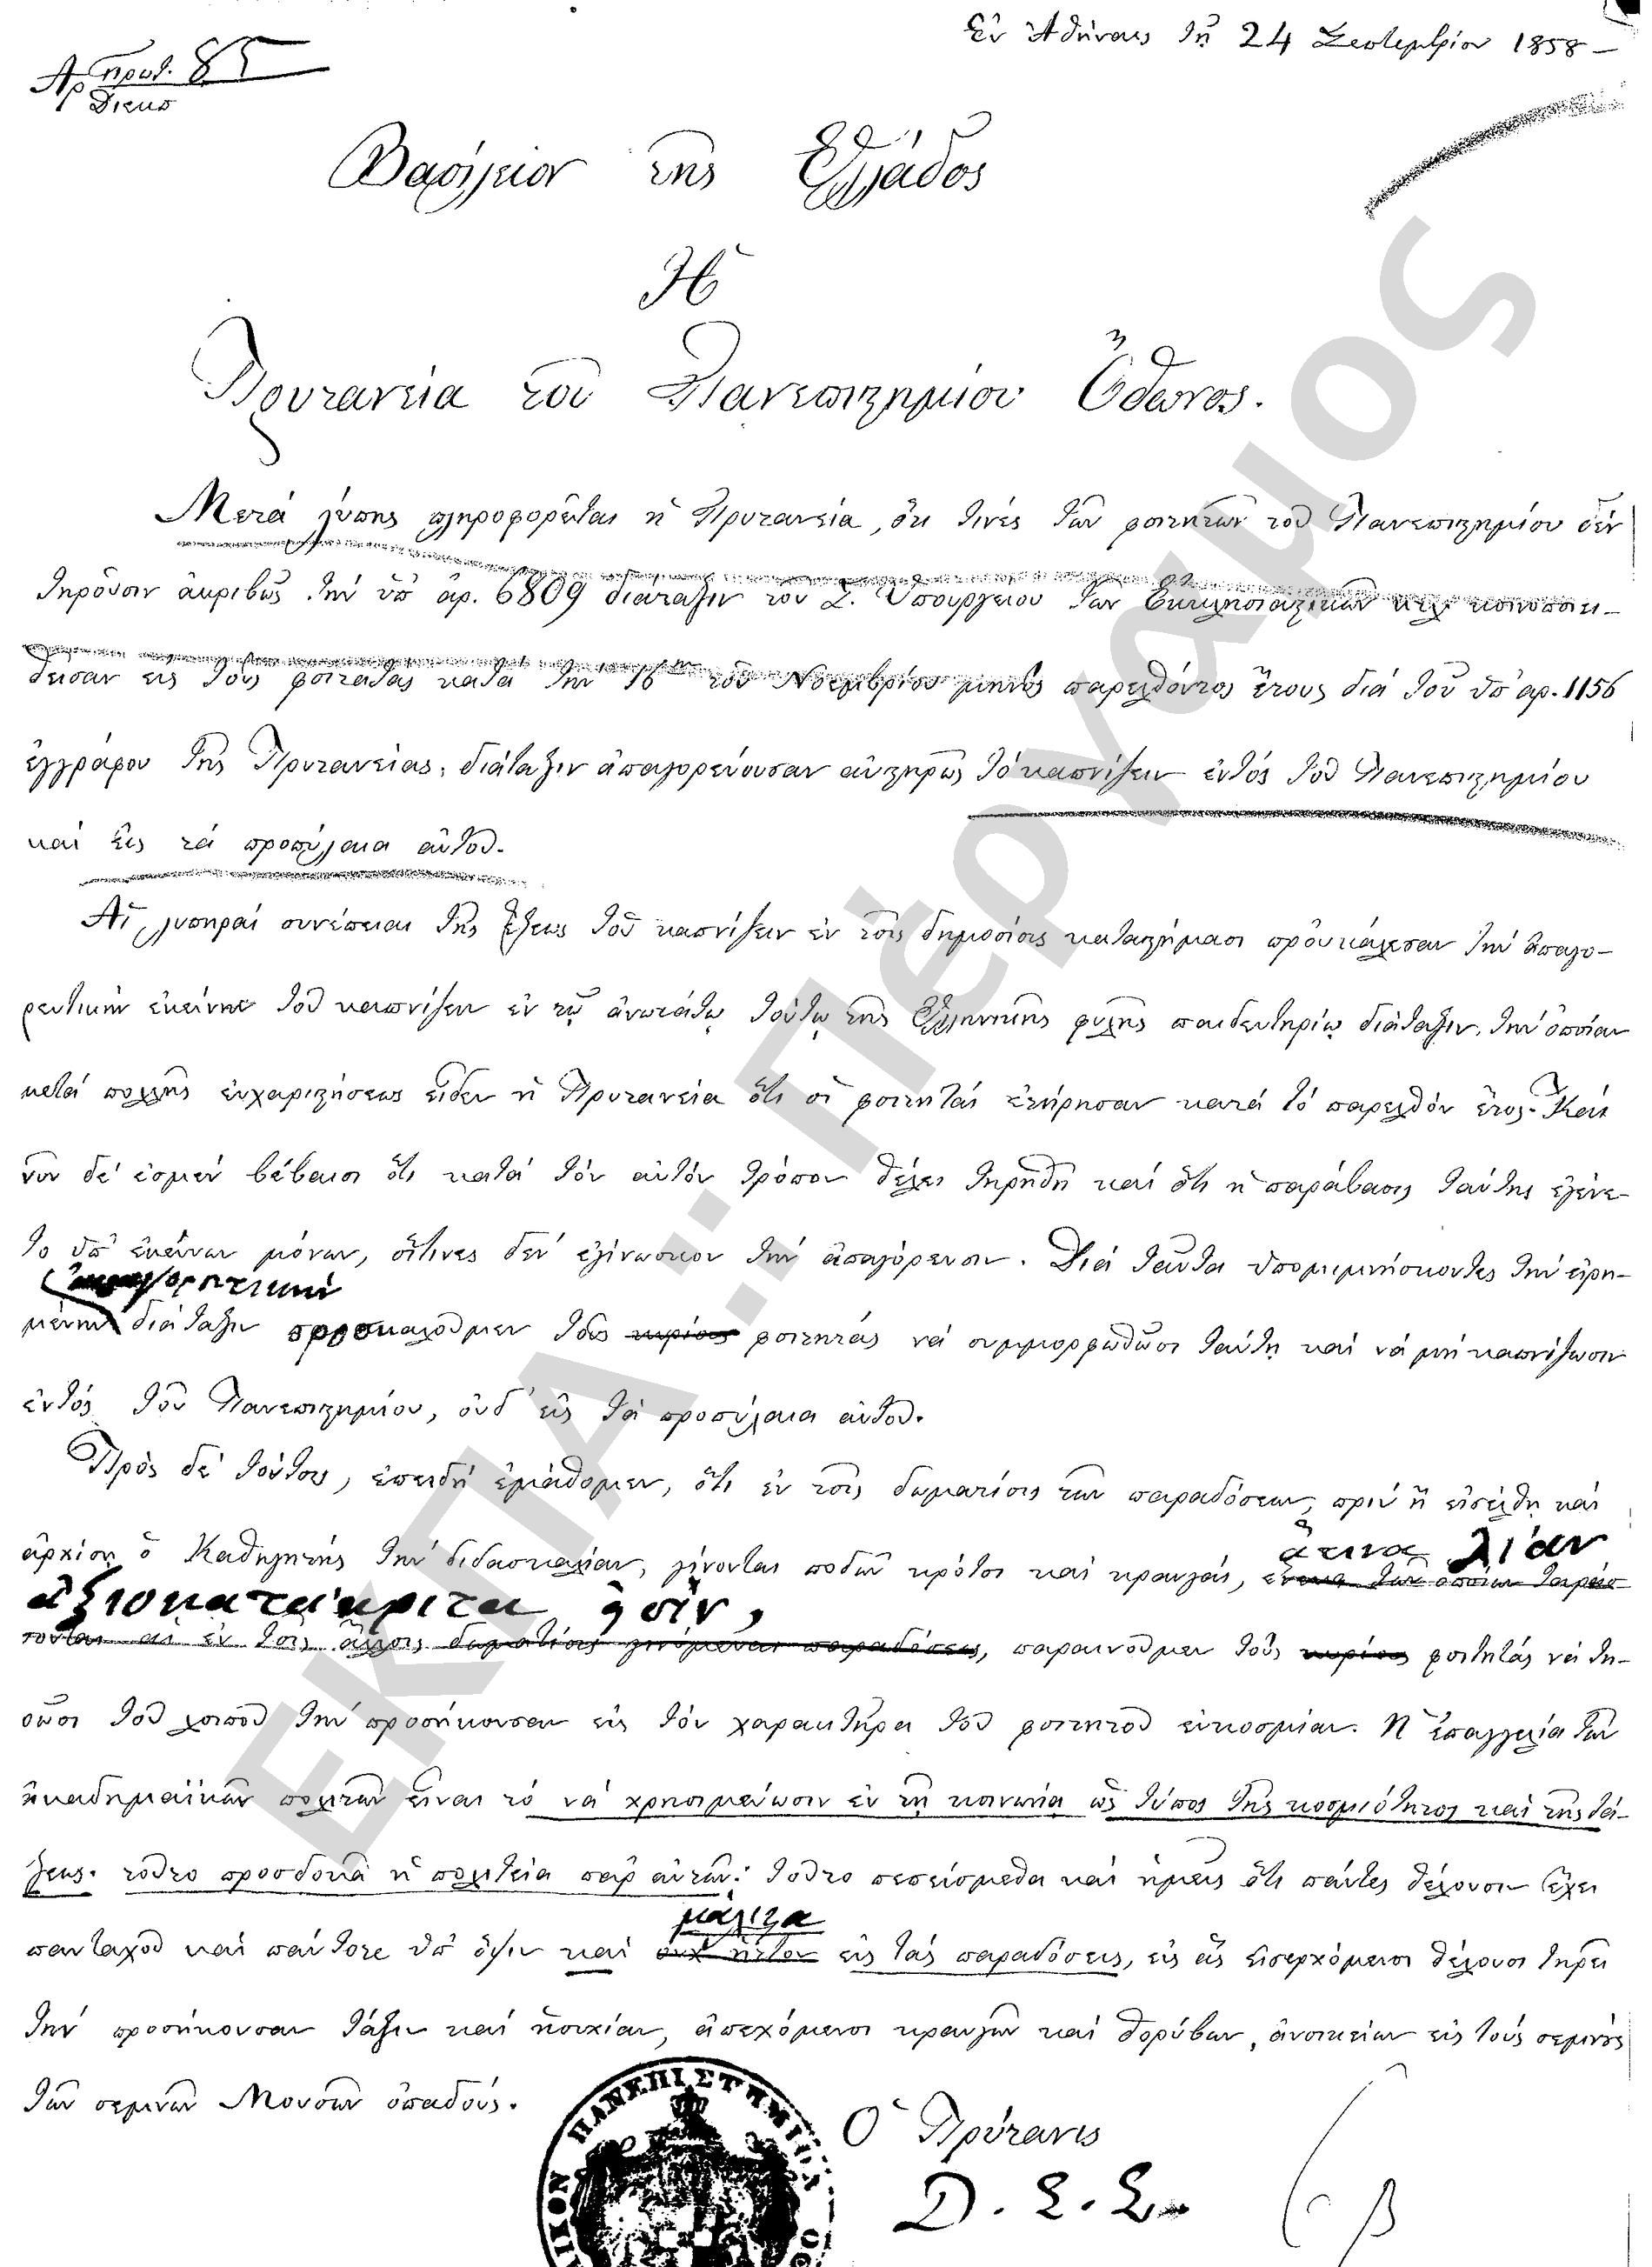 Ἐν Ἀθήναις τῇ 24 Σεπτεμβρίου 1858 –
Ἀρ πρωτ. 85
Διεκπ
Βασίλειον τῆς Ἑλλάδος
Ἡ
Πρυτανεία τοῦ Πανεπιστημίου Ὄθωνος.
Μετά λύπης πληροφορεῖται ἡ Πρυτανεία, ὅτι τινές τῶν φοιτητῶν τοῦ Πανεπιστημίου δέν
τηροῦσιν ἀκριβῶς τήν ὑπ' ἀρ. 6809 διάταξιν τοῦ Σ. Ὑπουργείου τῶν Ἐκκλησιαστικῶν κτλ κοινοποιη–
θεῖσαν εἰς τούς φοιτητάς κατά τήν 16ην τοῦ Νοεμβρίου μηνός παρελθόντος ἔτους διά τοῦ ὑπ' αρ. 1156
ἐγγράφου τῆς Πρυτανείας, διάταξιν ἀπαγορεύουσαν αὐστηρῶς τό καπνίζειν ἐντός τοῦ Πανεπιστημίου
καί εἰς τά προπύλαια αὐτοῦ.
Αἱ λυπηραί συνέπειαι τῆς ἕξεως τοῦ καπνίζειν ἐν τοῖς δημοσίοις καταστήμασι προὐκάλεσαν τήν ἀπαγο–
ρευτικήν ἐκείνην τοῦ καπνίζειν ἐν τῷ ἀνωτάτῳ τούτῳ τῆς Ἑλληνικῆς φυλῆς παιδευτηρίῳ διάταξιν, τήν ὁποίαν
μετά πολλῆς εὐχαριστήσεως εἶδεν ἡ Πρυτανεία ὅτι οἱ φοιτηταί ἐτήρησαν κατά τό παρελθόν ἔτος. Καί
νῦν δέ ἐσμέν βέβαιοι ὅτι κατά τόν αὐτόν τρόπον θέλει τηρηθῆ καί ὅτι ἡ παράβασις ταύτης ἐγένε–
το ὑπ' ἐκείνων μόνων, οἵτινες δέν ἐγίνωσκον τήν ἀπαγόρευσιν. Διά ταῦτα ὑπομιμνήσκοντες τήν εἰρη–
ἀπαγορευτικήν
μένην διάταξιν προσκαλοῦμεν τούς κυρίους φοιτητάς νά συμμορφωθῶσι ταύτῃ καί νά μή καπνίζωσιν
ἐντός τοῦ Πανεπιστημίου, οὐδ' εἰς τά προπύλαια αὐτοῦ.
Πρός δέ τούτοις, ἐπειδή ἐμάθομεν, ὅτι ἐν τοῖς δωματίοις τῶν παραδόσεων, πρίν ἤ εἰσέλθῃ καί
ἀρχίσῃ ὁ Καθηγητής τήν διδασκαλίαν, γίνονται ποδῶν κρότοι καί κραυγαί, ἕνεκα τῶν ὁποίων ταράσ
ἅτινα λίαν
ἀξιοκατάκριτα εἰσίν,
σονται αἱ ἐν τοῖς ἄλλοις δωματίοις γινόμεναι παραδόσεις, παραινοῦμεν τούς κυρίους φοιτητάς νά τη–
ρῶσι τοῦ λοιποῦ τήν προσήκουσαν εἰς τόν χαρακτῆρα τοῦ φοιτητοῦ εὐκοσμίαν. Ἡ ἐπαγγελία τῶν
ἀκαδημαϊκῶν πολιτῶν εἶναι τό νά χρησιμεύωσιν ἐν τῇ κοινωνίᾳ ὡς τύπος τῆς κοσμιότητος καί τῆς τά–
ξεως. τοῦτο προσδοκᾶ ἡ πολιτεία παρ' αὐτῶν. τοῦτο πεπείσμεθα καί ἡμεῖς ὅτι πάντες θέλουσιν ἔχει
μάλιστα
πανταχοῦ καί πάντοτε ὑπ' ὄψιν καί οὐχ ἧττον εἰς τάς παραδόσεις, εἰς ἅς εἰσερχόμενοι θέλουσι τηρεῖ
τήν προσήκουσαν τάξιν καί ἡσυχίαν, ἀπεχόμενοι κραυγῶν καί θορύβων, ἀνοικείων εἰς τούς σεμνούς
τῶν σεμνῶν Μουσῶν ὀπαδούς.
Ὁ Πρύτανις
Δ. Σ. Σ.
ΠΑΝΕΠΙΣΤΗΜΙ
ΕΚΠΑ:: Πέργαμος